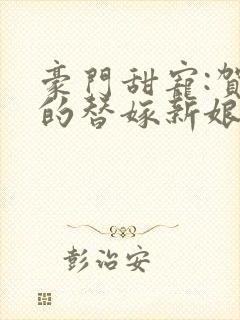 豪門甜寵:賀
的替嫁新娘
彭治安